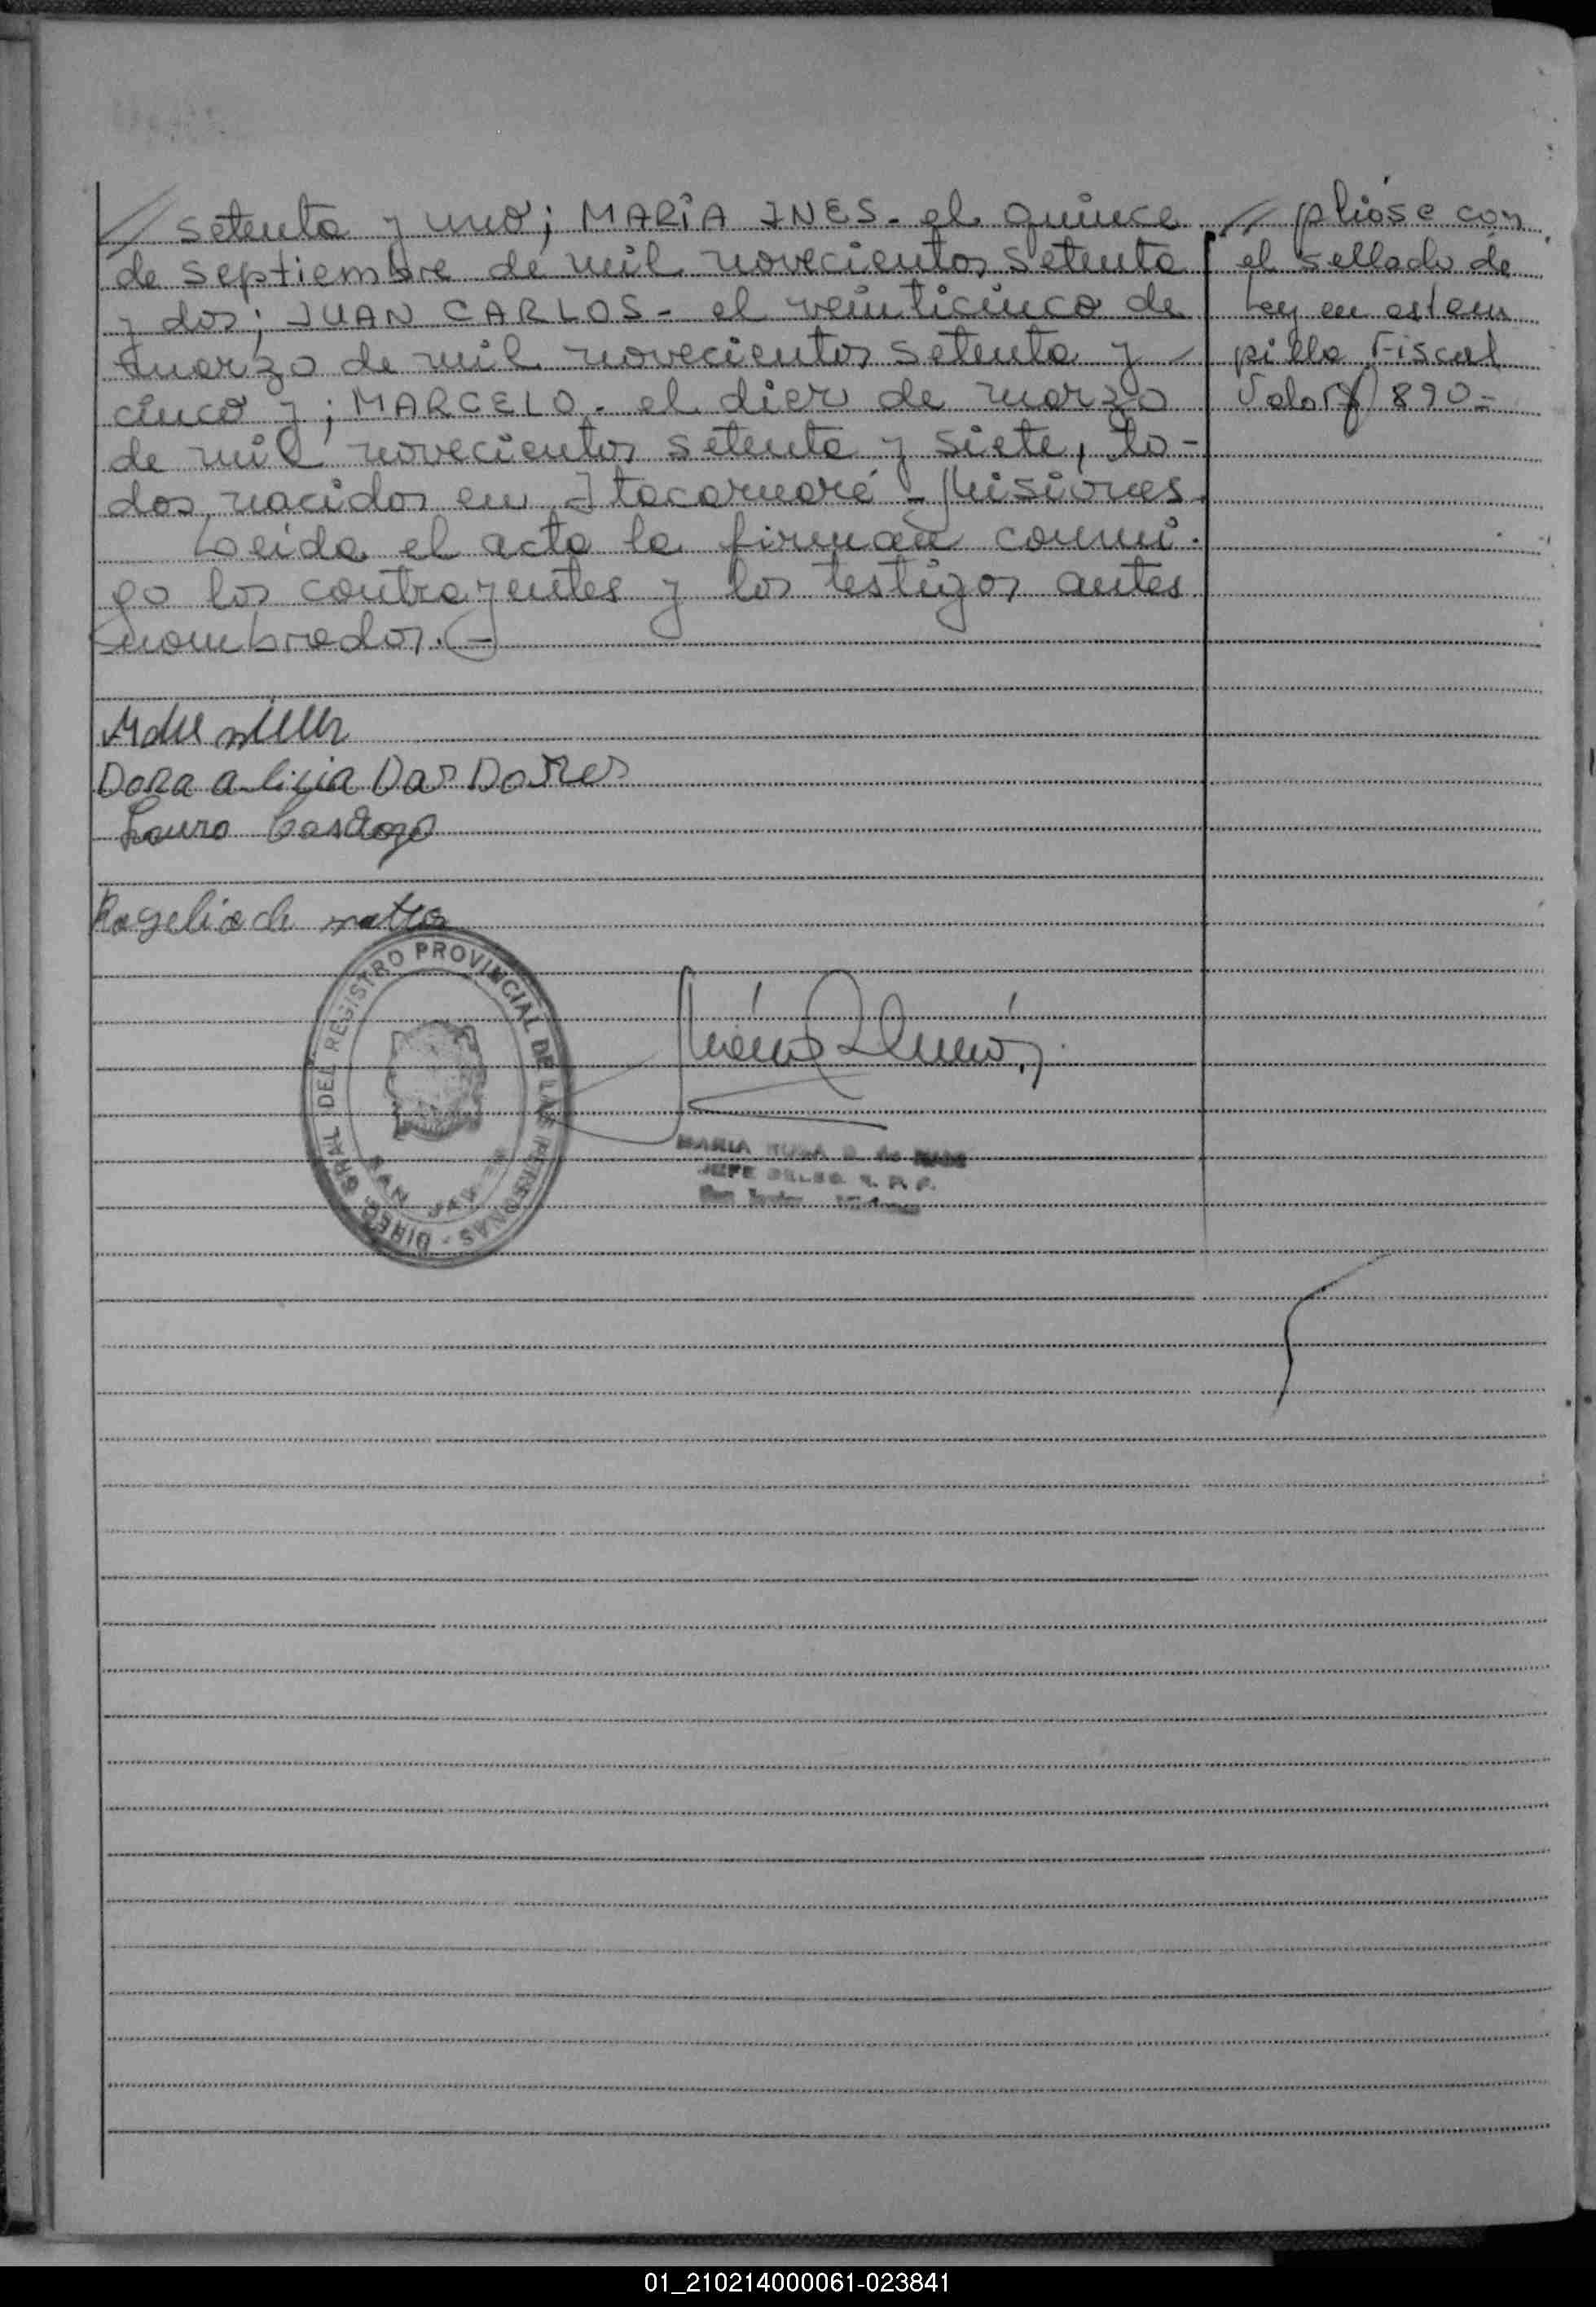 // setenta y uno; MARÍA INES- el quince
de septiembre de mil novecientos setenta
y dos; JUAN CARLOS- el veinticinco de
marzo de mil novecientos setenta y -
cinco y; MARCELO- el diez de marzo
de mil novecientos setenta y siete, to-
dos nacidos en Itacaruaré - Misiones.
Leída el acta la firman conmi-
go los contrayentes y los testigos antes
nombrados.(-)
// plióse con
el sellado de
Ley en estam
pilla Fiscal
Valor $ 890=
Dora alicia Das Dores
Lauro Cardozo
Rogelio de mattos
DIREC. GRAL DEL REGISTRO PROVINCIAL DE LAS PERSONAS -
SAN JAVIER
MARIA ROSA
JEFE DELEG. R. P. P.
San Javier Misiones
01_210214000061-023841